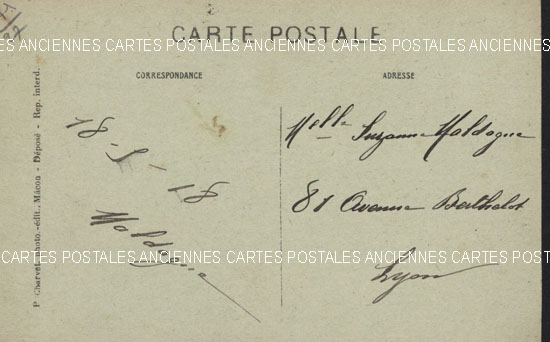 CARTE POSTALE
ANCIENNES CARTES POSTALES ANCIENNES CARTES POSTALES ANCIENNES
CORRESPONDANCE
ADRESSE
P Charvet, photo.-édit., Mâcon - Déposé - Rep. interd.
18-5-18
Maldague
Melle Suzanne Maldague
81 Avenue Berthelot
Lyon
CARTES POSTALES ANCIENNES CARTES POSTALES ANCIENNES CARTES